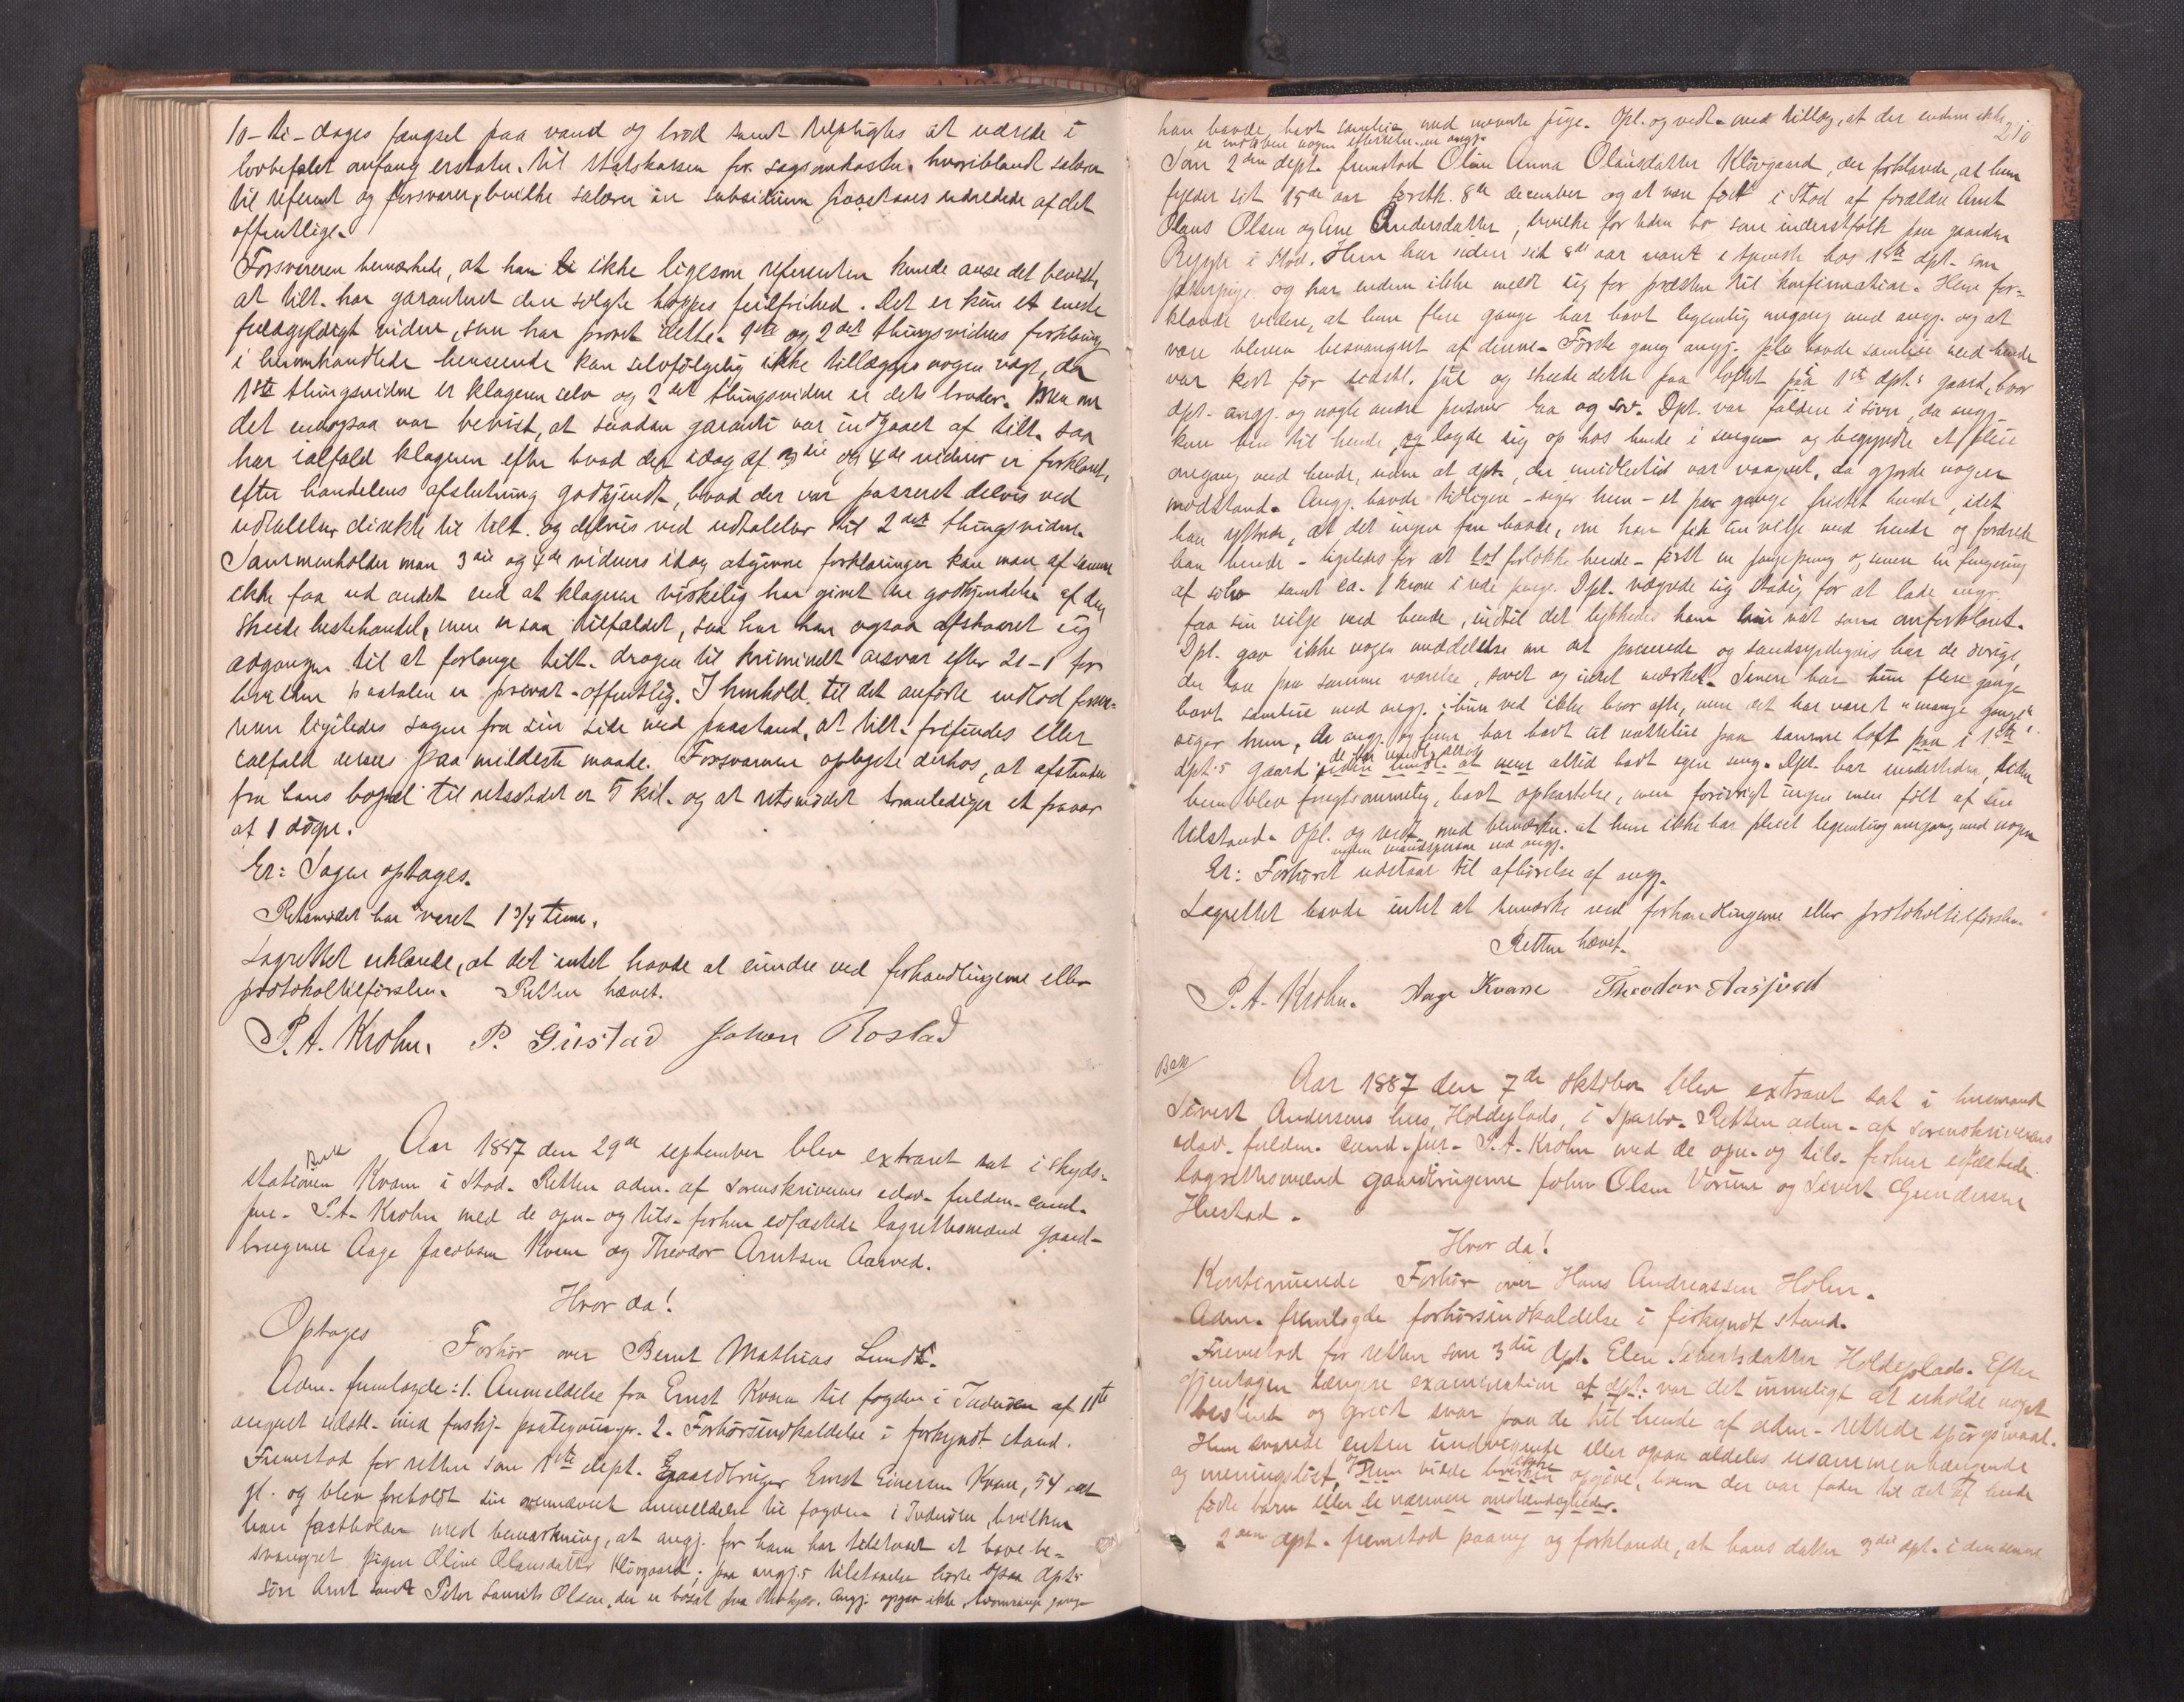 10 - ti - dages fængsel paa vand og brød samt tilpligtes at udrede i
lovbefalet omfang erstatn. til statskassen for sagsomkostn. hvoriblandt salærer
til referent og forsvarer, hvilke salærer in subsidium paastaaes udredede af det
offentlige.
Forsvareren bemærkede, at han ikke ligesom referenten kunde anse det bevist,
at tilt. har garanteret den solgte hoppes feilfrihed. Det er kun et eneste
fuldgyldigt vidne, som har prövet dette. 1ste og 2det thingsvidnes forklaring
i heromhandlede henseende kan selvfölgelig ikke tillægges nogen vægt, da
1ste thingsvidne er klageren selv og 2det thingsvidne er dets broder. Men om
det endogsaa var bevist, at saadan garanti var indgaaet af tilt. saa
har ialfald klageren efter hvad der idag af 3die og 4de vidner er forklaret,
efter handelens afslutning godkjendt, hvad der var passeret delvis ved
udtalelser direkte til tilt. og delvis ved udtalelser til 2det thingsvidne.
Sammenholder man 3die og 4de vidners idag afgivne forklaringer kan man af samme
ikke faa ud andet end at klageren virkelig har givet sin godkjendelse af den
skeede hestehandel, men er saa tilfældet, saa har han ogsaa afskaaret sig
adgangen til at forlange tilt. dragen til kriminelt ansvar efter 21-1 for
hvilken paatalen er privat-offentlig. I henhold til det anförte indlod forsva-
reren ligeledes sagen fra sin side med paastand, at tilt. frifindes eller
ialfald ansees paa mildeste maade. Forsvareren oplyste derhos, at afstanden
fra hans bopæl til retsstedet er 5 kil. og at retsmödet foranlediger et fravær
af 1 dögn.
Er: Sagen optages.
Retsmödet har varet 1 3/4 time.
Lagrettet erklærede, at det intet havde at erindre ved forhandlingerne eller
protokoltilförslen. Retten hævet.
P. A. Krohn. P. Gustad Johan Rostad
Aar 1887 den 29de september blev extraret sat i skyds-
stationen Kvam i Stod. Retten adm. af sorenskriverens edsv. fuldm. cand.
jur. P. A. Krohn med de opn. og tils. forhen edfæstede lagrettesmænd gaard-
brugerne Aage Jacobsen Kvam og Theodor Arntsen Aasved.
Hvor da!
Optages
Forhör over Bernt Mathias Lundt.
Adm. fremlagde: 1. Anmeldelse fra Ernst Kvam til fogden i Inderöen af 11te
august sidstl. med forskj. paategninger. 2. Forhörsindkaldelse i forkyndt stand.
Fremstod for retten som 1ste dept. Gaardbruger Ernst Einersen Kvam, 54 aar
gl. og blev foreholdt sin ovennævnte anmeldelse til fogden i Inderöen, hvilken
han fastholder med bemærkning, at angj. for ham har tilstaaet at have be-
svangret pigen Oline Olausdatter Klövgaard; paa angj.s tilstaaelse hörte ogsaa dpt.s
sön Arnt samt Peter Laurits Olsen, der er bosat paa . Angj. opgav ikke, hvormange gange
210
han havde havt samleie med nævnte pige. Opl. og vedt. med tillæg, at der endnu ikke
er indkommet nogen efterretn. om angj.
Som 2den dept. fremstod Oline Anna Olausdatter Klövgaard, der forklarede, at hun
fylder sit 15de aar förstk. 8de december og at være födt i Stod af forældre Arnt
Olaus Olsen og Ane Andersdatter, hvilke for tiden bo som inderstfolk paa gaarden
Rygh i Stod. Hun har siden sit 8de aar været i tjeneste hos 1ste dpt. som
gjæterpige og har endnu ikke meldt sig for præsten til konfirmation. Hun for-
klarede videre, at hun flere gange har havt legemlig omgang med angj. og at
være bleven besvangret af denne. Förste gang angj. havde samleie med hende
var kort för sidstl. jul og skeede dette paa loftet paa 1ste dpt.s gaard, hvor
dpt. angj. og nogle andre personer laa og sov. Dpt. var falden i sövn, da angj.
kom hen til hende, og lagde sig op hos hende i sengen og begyndte at pleie
omgang med hende, uden at dpt., der imidlertid var vaagnet, da gjorde nogen
modstand. Angj. havde tidligere - siger hun - et par gange fristet hende, idet
han yttrede, at det ingen fare havde, om han fik sin vilje med hende og forærede
han hende - ligeledes for at forlokke hende - först en pengepung og senere en fingerring
af sölv samt ca. 1 krone i rede penge. Dpt. vægrede sig stadig for at lade angj.
faa sin vilje med hende, indtil det lykkedes ham hin nat som anforklaret.
Dpt. gav ikke nogen meddelelse om det passerede og sandsynligvis har de övrige,
der laa paa samme værelse, sovet og intet mærket. Senere har hun flere gange
havt samleie med angj.; hun ved ikke hvor ofte, men det har været "mange gange"
siger hun, da angj. og hun har havt sit natteleie paa samme loft i 1ste
dpt.s gaard men altid havt egen seng. Dpt. har undertiden, siden
hun blev frugtsommelig, havt opkastelse, men forövrigt ingen men fölt af sin
tilstand. Opl. og vedt. med bemærkn. at hun ikke har pleiet legemlig omgang med nogen
anden mandsperson end angj.
Er: Forhöret udstaar til afhörelse af angj.
Lagrettet havde intet at bemærke ved forhandlingerne eller protokoltilförslen.
Retten hævet.
P. A. Krohn. Aage Kvam Theodor Aasved
Aar 1887 den 7de oktober blev extraret sat i husmand
Sivert Andersens hus, Holdeplads, i Sparbo. Retten adm. af sorenskriverens
edsv. fuldm. cand. jur. P. A. Krohn med de opn. og tils. forhen edfæstede
lagrettesmænd gaardbrugerne John Olsen Vörum og Sivert Gundersen
Hustad.
Hvor da!
Kontinuerede Forhör over Hans Andreassen Holm.
Adm. fremlagde forhörsindkaldelse i forkyndt stand.
Fremstod for retten som 3die dpt. Elen Sivertsdatter Holdeplads. Efter
gjentagen længere examination af dpt. var det umuligt at erholde noget
bestemt og greit svar paa de til hende af adm. rettede spörgsmaal.
Hun svarede enten undvigende eller ogsaa aldeles usammenhængende
og meningslöst, og hun vilde ikke opgive, hvem der var fader til det af hende
födte barn eller de nærmere omstændigheder.
2den dpt. fremstod paany og forklarede, at hans datter 3die dpt. i den senere